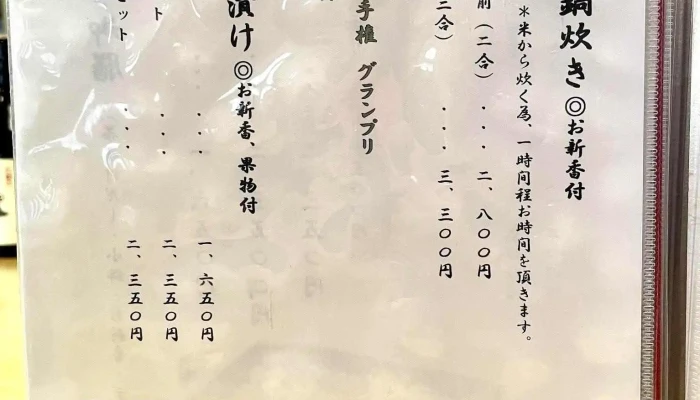 銅炊き ◎お新香付
＊米から炊く為、一時間程お時間を頂きます。
前（二合）・・・二、八〇〇円
三合）・・・三、三〇〇円
手権 グランプリ
漬け ◎お新香、果物付
・・・一、六五〇円
ト・・・二、三五〇円
セット・・・二、三五〇円